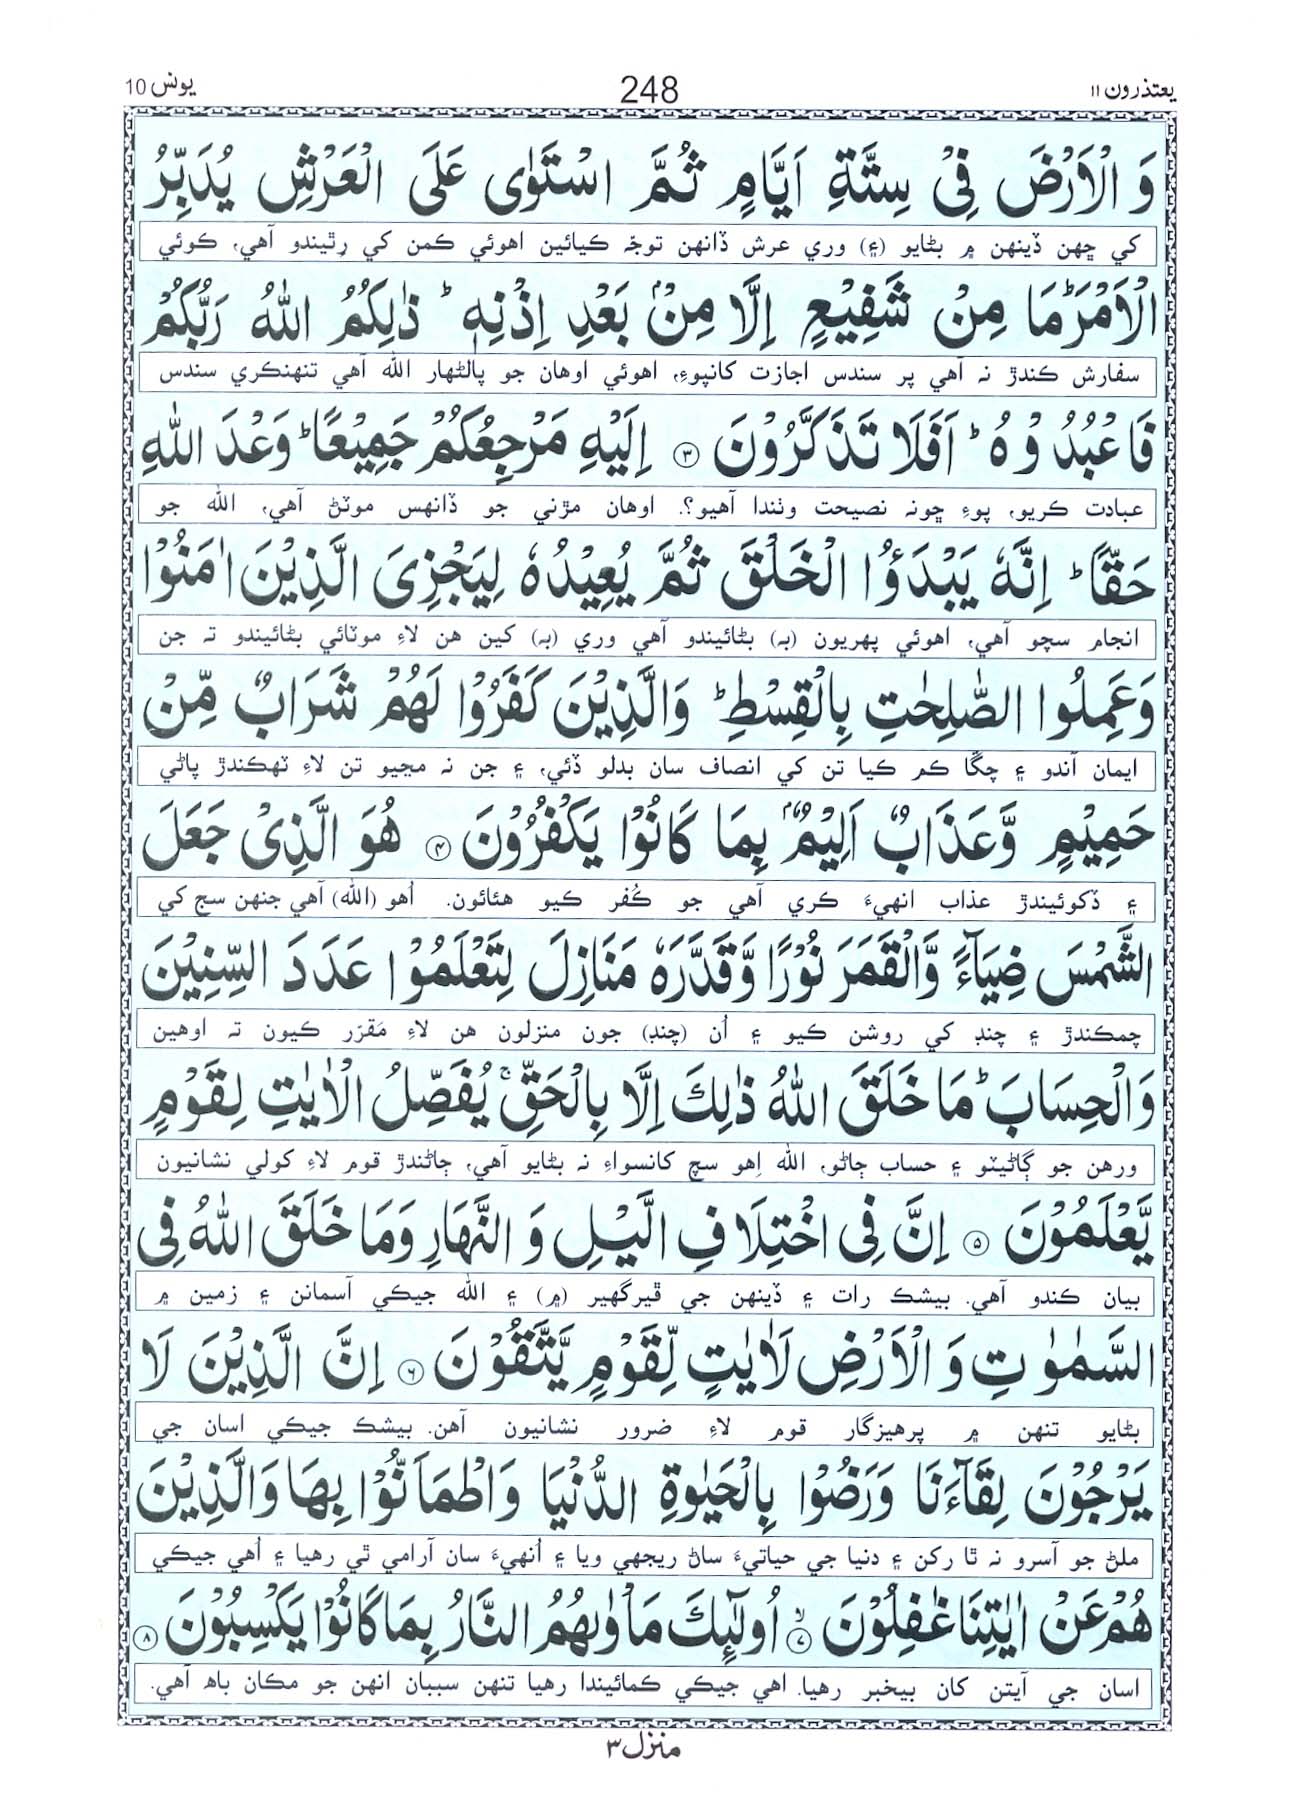 يعتذرون ۱۱ 248 يونس 10
وَ الْاَرْضَ فِیْ سِتَّةِ اَیَّامٍ ثُمَّ اسْتَوٰی عَلَی الْعَرْشِ یُدَبِّرُ
کي ڇهن ڏينهن ۾ بڻايو (۽) وري عرش ڏانهن توجّہ ڪيائين اهوئي ڪمن کي رِٿيندو آهي، ڪوئي
الْاَمْرَ ؕ مَا مِنْ شَفِیْعٍ اِلَّا مِنْۢ بَعْدِ اِذْنِهٖ ؕ ذٰلِكُمُ اللّٰهُ رَبُّكُمْ
سفارش ڪندڙ نہ آهي پر سندس اجازت کانپوءِ، اهوئي اوهان جو پالڻهار الله آهي تنهنڪري سندس
فَاعْبُدُوْهُ ؕ اَفَلَا تَذَكَّرُوْنَ ۝۳ اِلَیْهِ مَرْجِعُكُمْ جَمِیْعًا ؕ وَعْدَ اللّٰهِ
عبادت ڪريو، پوءِ ڇونہ نصيحت وٺندا آهيو؟. اوهان مڙني جو ڏانهس موٽڻ آهي، الله جو
حَقًّا ؕ اِنَّهٗ یَبْدَؤُا الْخَلْقَ ثُمَّ یُعِیْدُهٗ لِیَجْزِیَ الَّذِیْنَ اٰمَنُوْا
انجام سچو آهي، اهوئي پهريون (بہ) بڻائيندو آهي وري (بہ) کين هن لاءِ موٽائي بڻائيندو تہ جن
وَعَمِلُوا الصّٰلِحٰتِ بِالْقِسْطِ ؕ وَالَّذِیْنَ كَفَرُوْا لَهُمْ شَرَابٌ مِّنْ
ايمان آندو ۽ چڱا ڪم ڪيا تن کي انصاف سان بدلو ڏئي، ۽ جن نہ مڃيو تن لاءِ ٽهڪندڙ پاڻي
حَمِیْمٍ وَّعَذَابٌ اَلِیْمٌۢ بِمَا كَانُوْا یَكْفُرُوْنَ ۝۴ هُوَ الَّذِیْ جَعَلَ
۽ ڏکوئيندڙ عذاب انهيءَ ڪري آهي جو ڪُفر ڪيو هئائون. اُهو (الله) آهي جنهن سج کي
الشَّمْسَ ضِیَآءً وَّالْقَمَرَ نُوْرًا وَّقَدَّرَهٗ مَنَازِلَ لِتَعْلَمُوْا عَدَدَ السِّنِیْنَ
چمڪندڙ ۽ چنڊ کي روشن ڪيو ۽ اُن (چنڊ) جون منزلون هن لاءِ مَقرَر ڪيون تہ اوهين
وَالْحِسَابَ ؕ مَا خَلَقَ اللّٰهُ ذٰلِكَ اِلَّا بِالْحَقِّ ۚ یُفَصِّلُ الْاٰیٰتِ لِقَوْمٍ
ورهن جو ڳاڻيٽو ۽ حساب ڄاڻو، الله اِهو سچ کانسواءِ نہ بڻايو آهي، ڄاڻندڙ قوم لاءِ کولي نشانيون
یَّعْلَمُوْنَ ۝۵ اِنَّ فِی اخْتِلَافِ الَّیْلِ وَ النَّهَارِ وَمَا خَلَقَ اللّٰهُ فِی
بيان ڪندو آهي. بيشڪ رات ۽ ڏينهن جي ڦيرگهير (۾) ۽ الله جيڪي آسمانن ۽ زمين ۾
السَّمٰوٰتِ وَ الْاَرْضِ لَاٰیٰتٍ لِّقَوْمٍ یَّتَّقُوْنَ ۝۶ اِنَّ الَّذِیْنَ لَا
بڻايو تنهن ۾ پرهيزگار قوم لاءِ ضرور نشانيون آهن. بيشڪ جيڪي اسان جي
یَرْجُوْنَ لِقَآءَنَا وَرَضُوْا بِالْحَیٰوةِ الدُّنْیَا وَاطْمَاَنُّوْا بِهَا وَالَّذِیْنَ
ملڻ جو آسرو نہ ٿا رکن ۽ دنيا جي حياتيءَ ساڻ ريجهي ويا ۽ اُنهيءَ سان آرامي ٿي رهيا ۽ اُهي جيڪي
هُمْ عَنْ اٰیٰتِنَا غٰفِلُوْنَ ۙ۝۷ اُولٰٓىِٕكَ مَاْوٰىهُمُ النَّارُ بِمَا كَانُوْا یَكْسِبُوْنَ ۝۸
اسان جي آيتن کان بيخبر رهيا. اهي جيڪي ڪمائيندا رهيا تنهن سببان انهن جو مڪان باهہ آهي.
منزل ۳